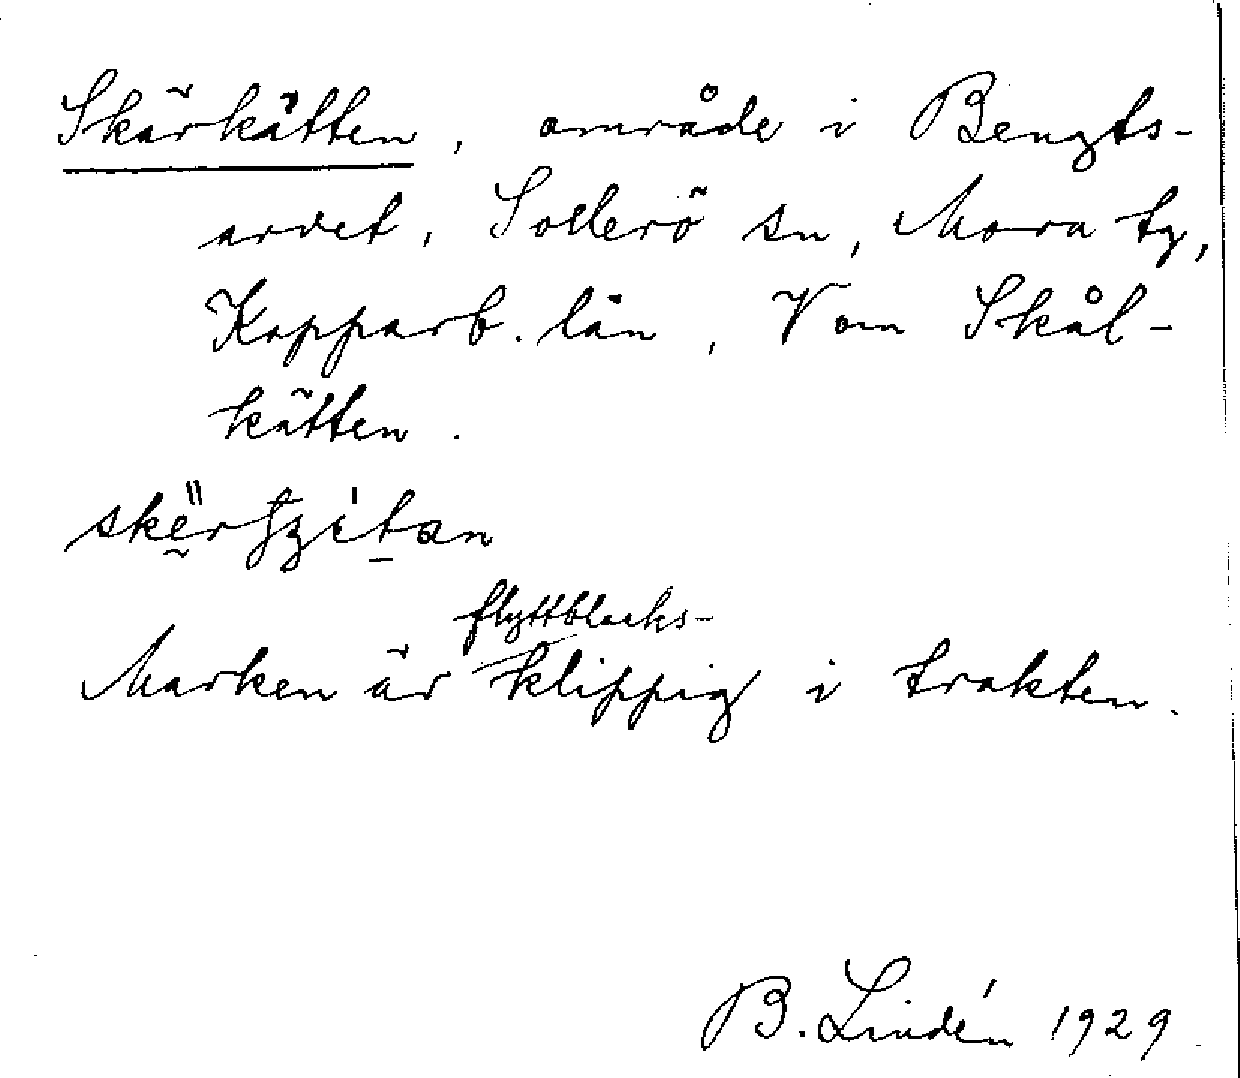 Skärkätten, område i Bengts-
arvet, Sollerö sn, Mora tg,
Kopparb. län, V om Skål-
kätten.
flyttblocks-
Marken är klippig i trakten.
B. Lindén 1929